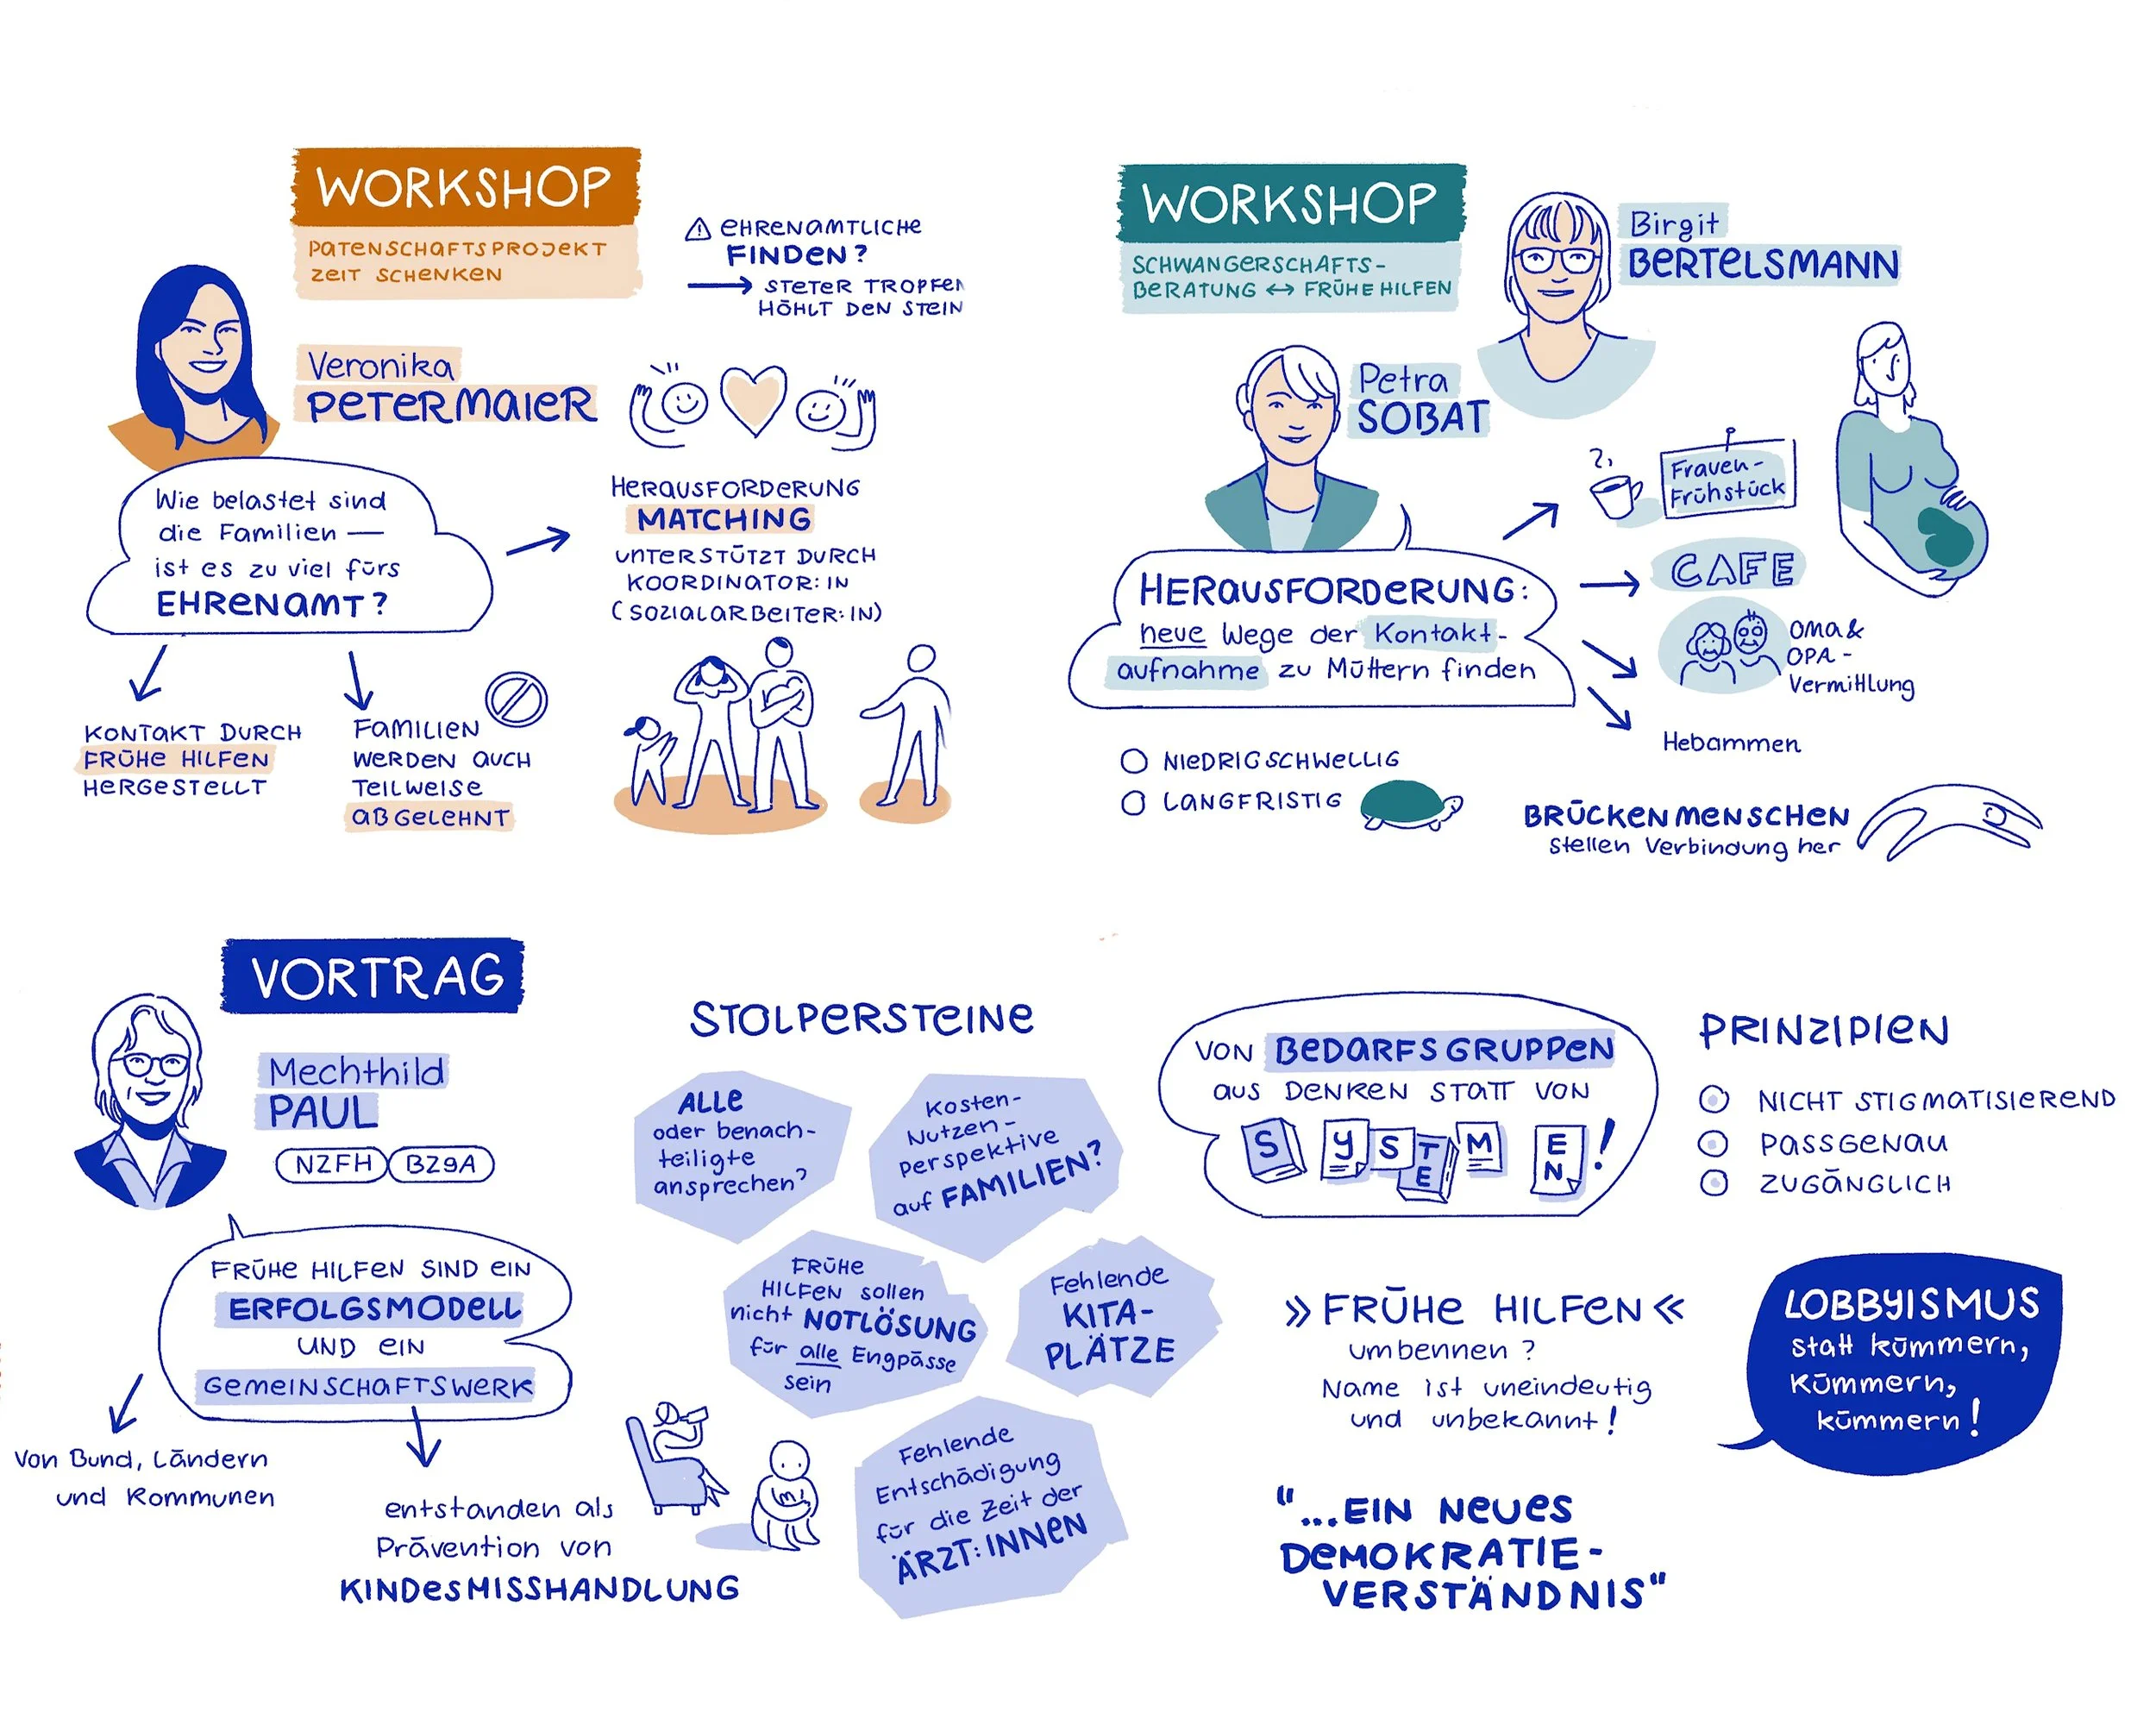 WORKSHOP
PATENSCHAFTSPROJEKT
ZEIT SCHENKEN
Veronika
PETERMAIER
EHRENAMTLICHE
FINDEN?
STETER TROPFEN
HÖHLT DEN STEIN
Wie belastet sind
die Familien —
ist es zu viel fürs
EHRENAMT?
HERAUSFORDERUNG
MATCHING
UNTERSTÜTZT DURCH
KOORDINATOR:IN
(SOZIALARBEITER:IN)
KONTAKT DURCH
FRÜHE HILFEN
HERGESTELLT
FAMILIEN
WERDEN AUCH
TEILWEISE
ABGELEHNT
WORKSHOP
SCHWANGERSCHAFTS-
BERATUNG ↔ FRÜHE HILFEN
Birgit
BERTELSMANN
Petra
SOBAT
HERAUSFORDERUNG:
neue Wege der Kontakt-
aufnahme zu Müttern finden
Frauen-
Frühstück
CAFE
OMA &
OPA-
Vermittlung
Hebammen
NIEDRIGSCHWELLIG
LANGFRISTIG
BRÜCKENMENSCHEN
stellen Verbindung her
VORTRAG
Mechthild
PAUL
NZFH BZgA
FRÜHE HILFEN SIND EIN
ERFOLGSMODELL
UND EIN
GEMEINSCHAFTSWERK
von Bund, Ländern
und Kommunen
entstanden als
Prävention von
KINDESMISSHANDLUNG
STOLPERSTEINE
ALLE
oder benach-
teiligte
ansprechen?
Kosten-
Nutzen-
perspektive
auf FAMILIEN?
FRÜHE
HILFEN sollen
nicht NOTLÖSUNG
für alle Engpässe
sein
Fehlende
KITA-
PLÄTZE
Fehlende
Entschädigung
für die Zeit der
ÄRZT:INNEN
VON BEDARFSGRUPPEN
AUS DENKEN STATT VON
SYSTEMEN!
PRINZIPIEN
NICHT STIGMATISIEREND
PASSGENAU
ZUGÄNGLICH
»FRÜHE HILFEN«
umbennen?
Name ist uneindeutig
und unbekannt!
LOBBYISMUS
statt kümmern,
kümmern,
kümmern!
"...EIN NEUES
DEMOKRATIE-
VERSTÄNDNIS"